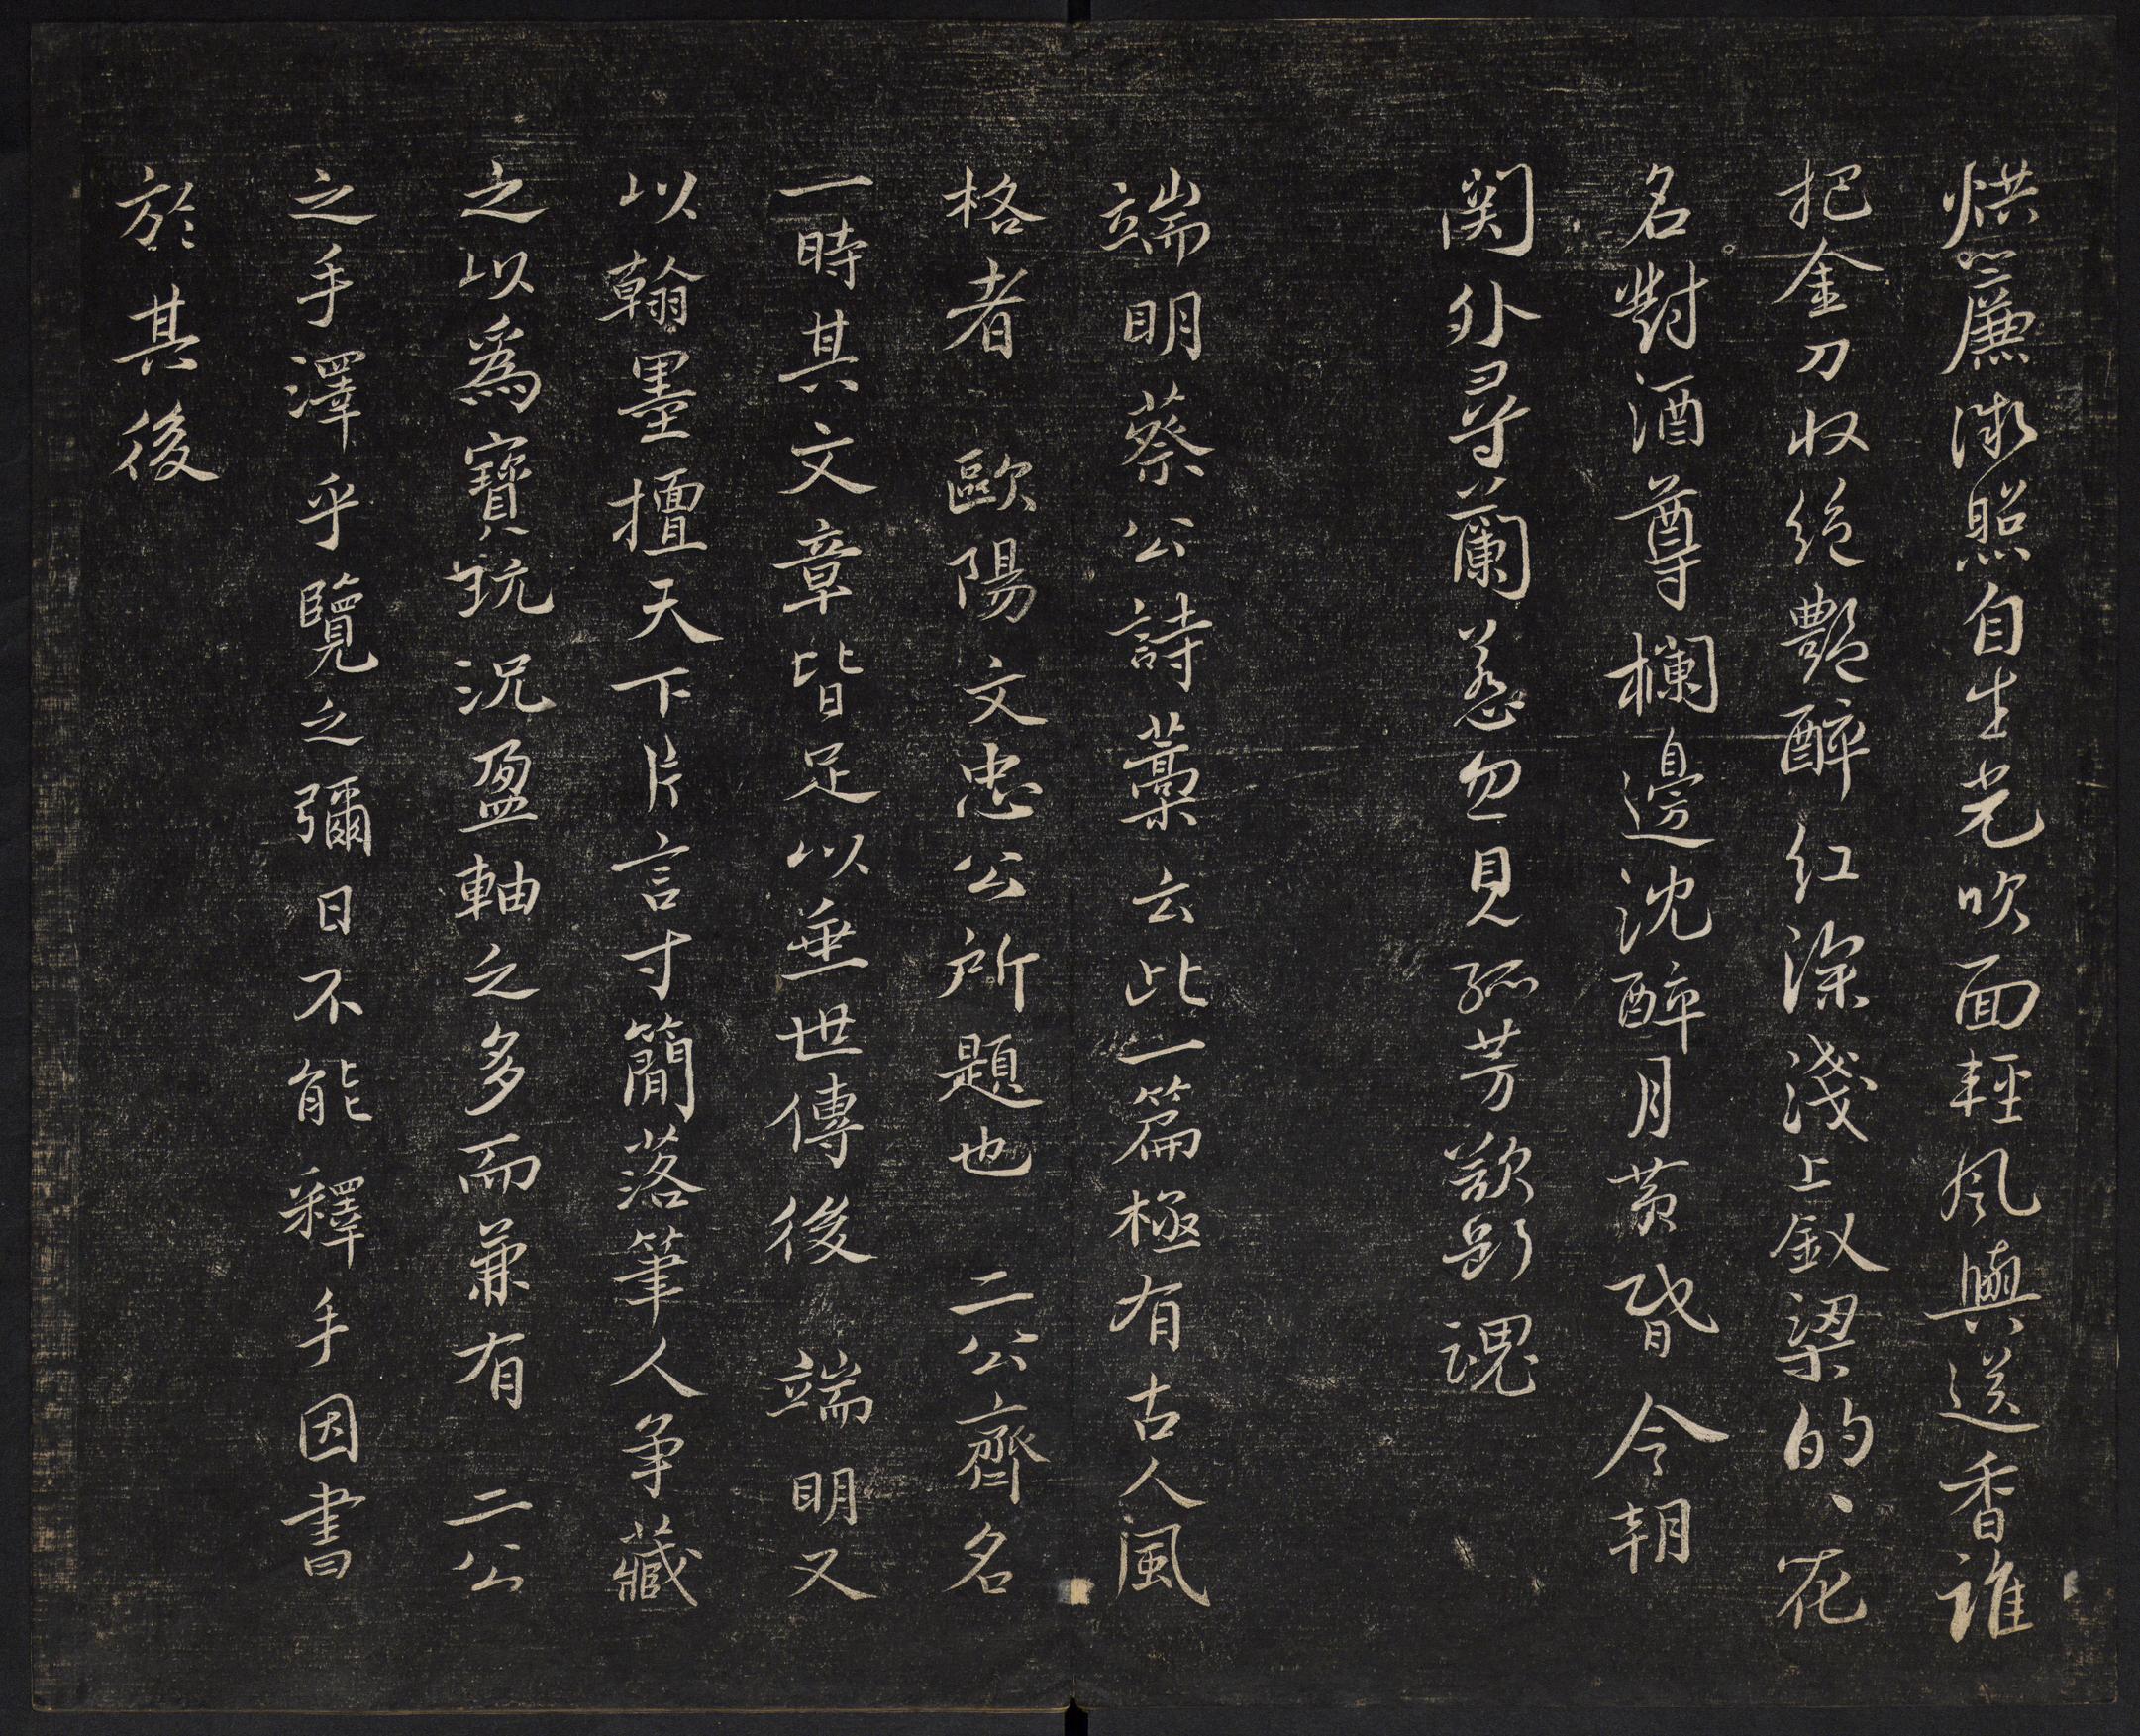 烘簾微照自生光吹面輕風與送香誰
把金刀收絕艷醉紅深淺上釵梁的、花
名對酒尊欄邊沈醉月黃昏今朝
関外尋蘭蕙勿見孤芳欲斷魂
端明蔡公詩藁云此一篇極有古人風
格者歐陽文忠公所題也二公齊名
一時其文章皆足以垂世傳後端明又
以翰墨擅天下片言寸簡落筆人爭藏
之以為寶玩況盈軸之多而兼有二公
之手澤乎覽之彌日不能釋手因書
於其後